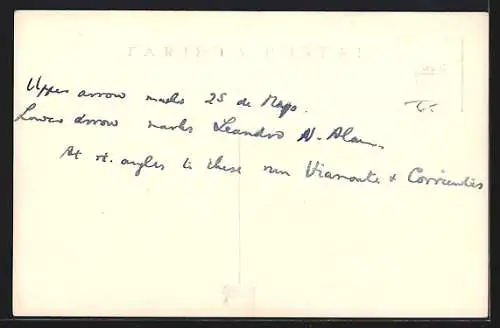 TARJETA POSTAL
Upper arrow marks 25 de Mayo.
Lower arrow marks Leandro N. Alem.
At rt. angles to these run Viamonte & Corrientes